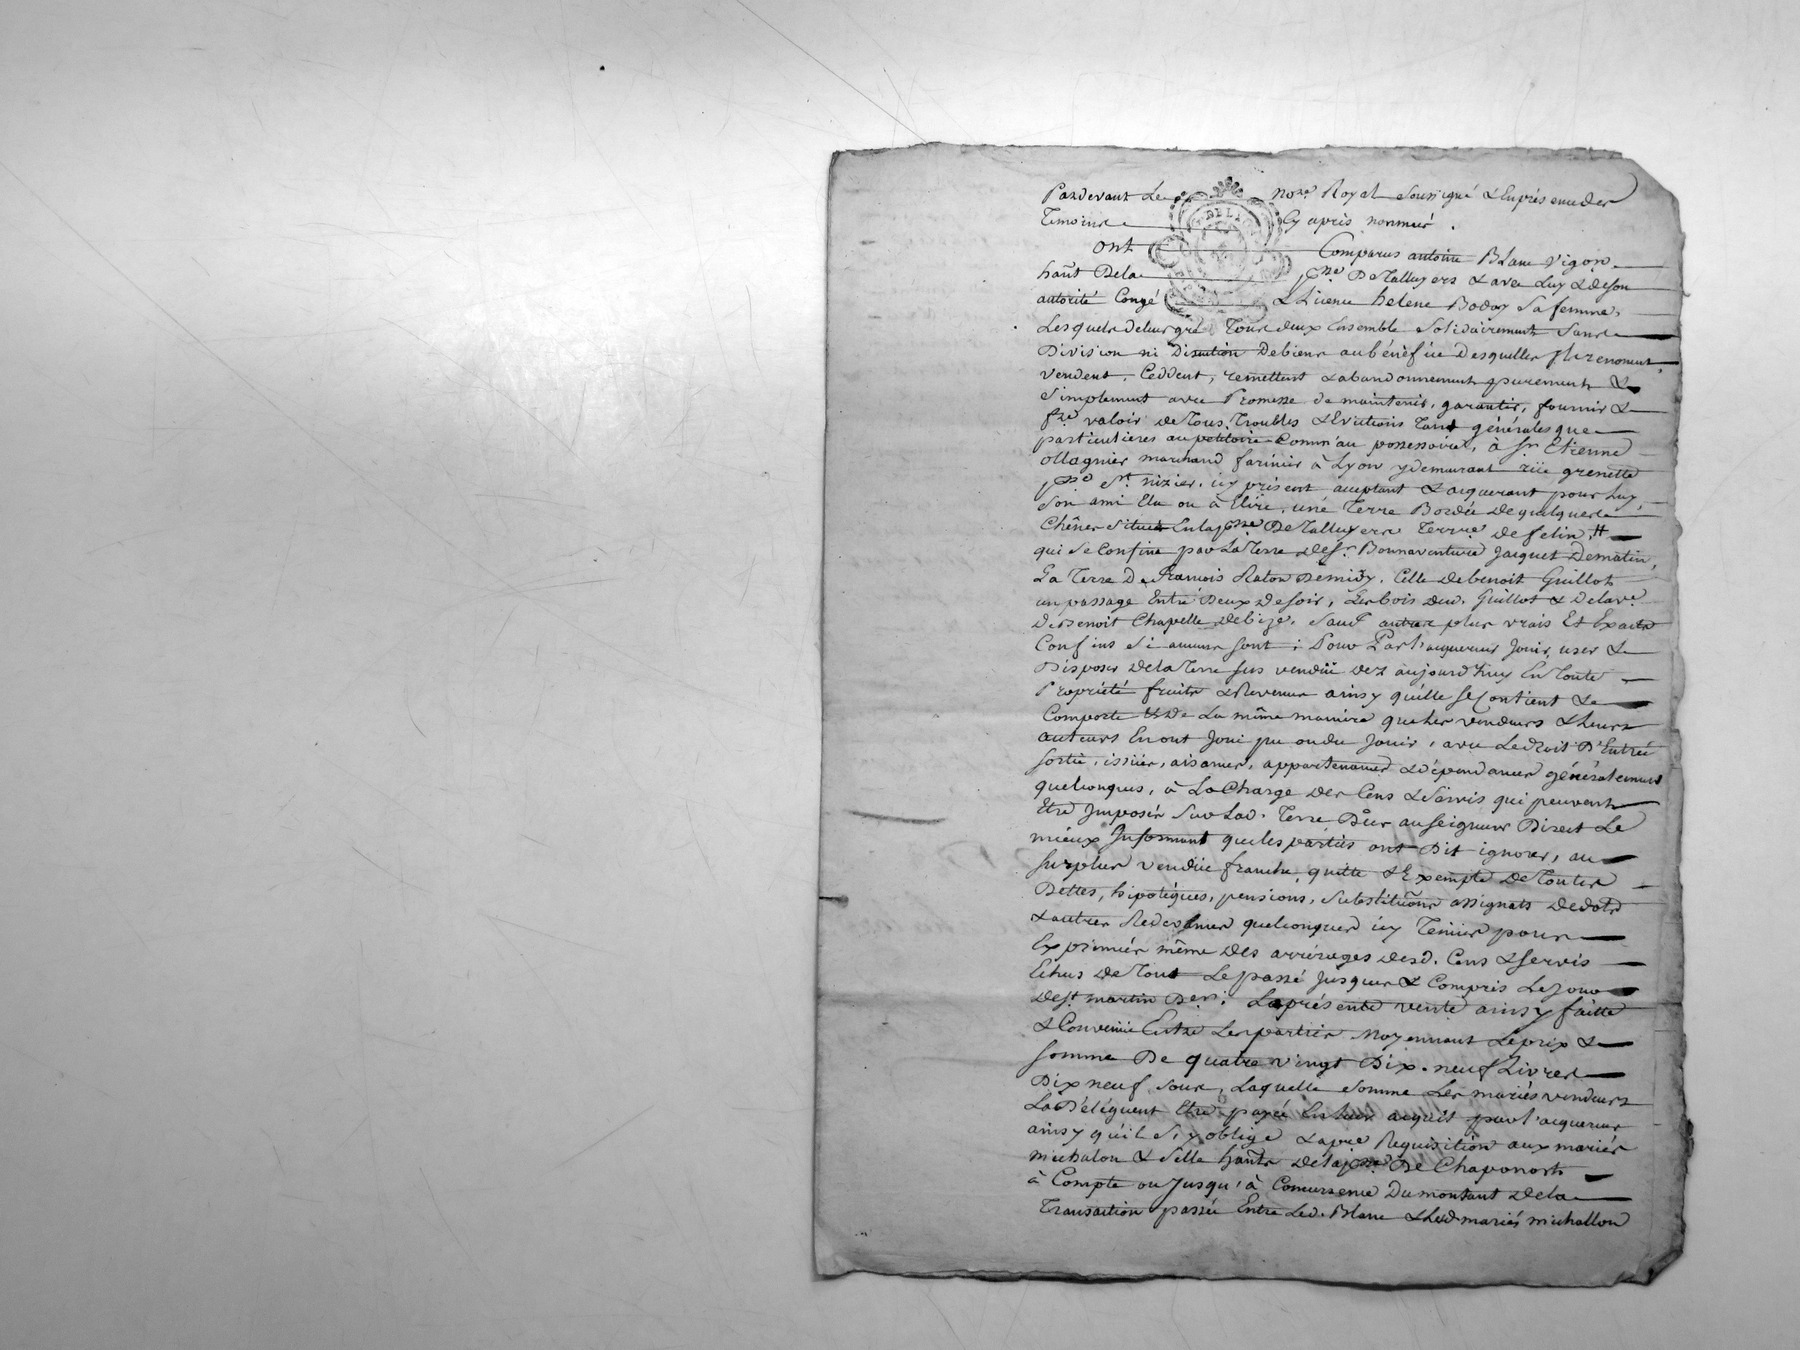 Pardevant Le no.re Royal soussigné & Enpresence des
Temoins Cy après nommés.
ont Comparus antoine Blanc vigon
hañt Dela p.sse De Talluyers & avec Luy & deson
autorité Congé & Licence helene Boday sa femme,
Lesquels deleur gré Tous deux Ensemble solidairement sans
Division ni Discution debiens aubénéfice desquelles ils renoncent,
vendent, Ceddent, remettent & abandonnement purement &
simplement avec Promesse de maintenir, garantir, fournir &
f.re valoir de Tous Troubles & Evictions Tant générales que
particulieres au petitoire Comm'au possessoire, à s.r Etienne
ollagnier marchand farinier à Lyon y demeurant rüe grenette
p.sse S.t nizier, icy présent acceptant & acquerant pour Luy,
son ami Elu ou à Elire, une Terre Bordée de quelques
Chênes située Enlap.sse De Talluyers Terr.re de felin, #
qui se Confine par La Terre des.r Bonnaventure Jacquet dematin,
La Terre De francois Raton Demidy, Celle debenoit Guillot
un passage Entre Deux desoir, Les bois dud. Guillot & delave
de Benoit Chapelle debize, sauf autres plus vrais Et Exacts
Confins si aucuns sont; Pour Par l'acquereur Jouir, user &
Disposer dela Terre sus vendüe dez aujourd'huy En Toute
Propriété fruits & Revenus ainsy qu'elle se Contient &
Comporte & de La même maniere que les vendeurs & Leurs
auteurs En ont Joui pu ou du Jouir, avec Le droit D'Entrée
sortie, issües, aisances, appartenances & dépendances généralement
quelconques, à La Charge des Cens & servis qui peuvent
Etre Imposés sur Lad. Terre Dus au seigneur Direct Le
mieux Informant que les parties ont Dit ignorer, au
surplus vendüe franche, quitte & Exempte de Toutes
Dettes, hipotèques, pensions, substitũons assignats de dots
& autres Redevances quelconques icy Tenües pour
Exprimées même des arrérages desd. Cens & servis
Echus de Tout Le passé Jusques & Compris Le Jour
de s.t martin D.er. La présente vente ainsy faitte
& Convenüe Entre Les parties Moyennant Le prix &
somme De quatre vingt Dix-neuf Livres
Dix neuf sous, Laquelle somme Les mariés vendeurs
La Délèguent Etre payée En Leur acquit par l'acquereur
ainsy qu'il s'y oblige à la p.re Requisition aux mariés
michalon & selle hañts dela p.sse De Chaponost
à Compte ou Jusqu'à Concurrence Du montant dela
Transaction passée Entre Led. Blanc & Lesd mariés michallon